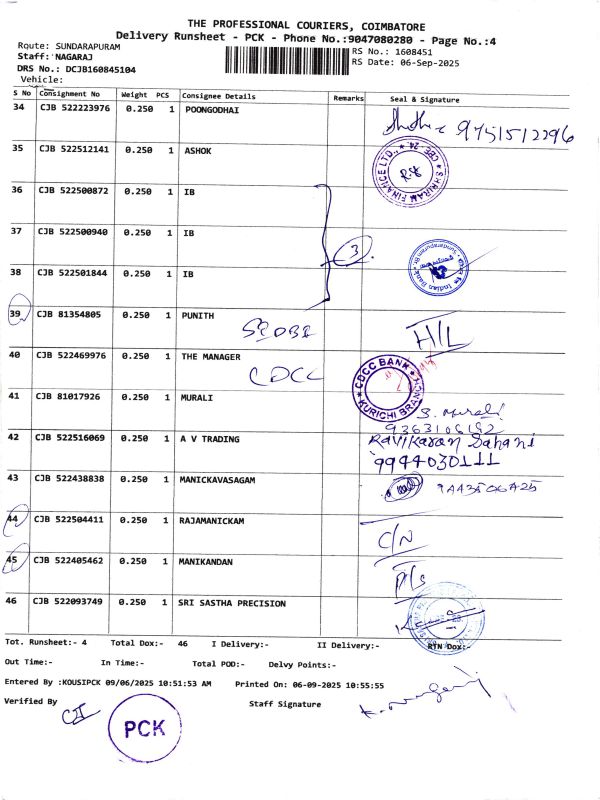 THE PROFESSIONAL COURIERS, COIMBATORE
Delivery Runsheet - PCK - Phone No.:9047080280 - Page No.:4
Route: SUNDARAPURAM
RS No.: 1608451
Staff: NAGARAJ
RS Date: 06-Sep-2025
DRS No.: DCJB160845104
Vehicle:
S No Consignment No Weight PCS Consignee Details Remarks Seal & Signature
34 CJB 522223976 0.250 1 POONGODHAI 9751512296
35 CJB 522512141 0.250 1 ASHOK
SHRIRAM FINANCE LTD., * CBE-24 *
36 CJB 522500872 0.250 1 IB
37 CJB 522500940 0.250 1 IB 3
38 CJB 522501844 0.250 1 IB
Indian Bank
39 CJB 81354805 0.250 1 PUNITH H/L
40 CJB 522469976 0.250 1 THE MANAGER
CDCC
CDCC BANK * KURICHI BRANCH *
41 CJB 81017926 0.250 1 MURALI S. Murali
42 CJB 522516069 0.250 1 A V TRADING Ravikaran Sahani
9944030111
43 CJB 522438838 0.250 1 MANICKAVASAGAM 9443506425
44 CJB 522504411 0.250 1 RAJAMANICKAM C/N
45 CJB 522405462 0.250 1 MANIKANDAN P/S
46 CJB 522093749 0.250 1 SRI SASTHA PRECISION
Tot. Runsheet:- 4 Total Dox:- 46 I Delivery:- II Delivery:- RTN Dox:-
Out Time:- In Time:- Total POD:- Delvy Points:-
Entered By :KOUSIPCK 09/06/2025 10:51:53 AM Printed On: 06-09-2025 10:55:55
Verified By Staff Signature
PCK